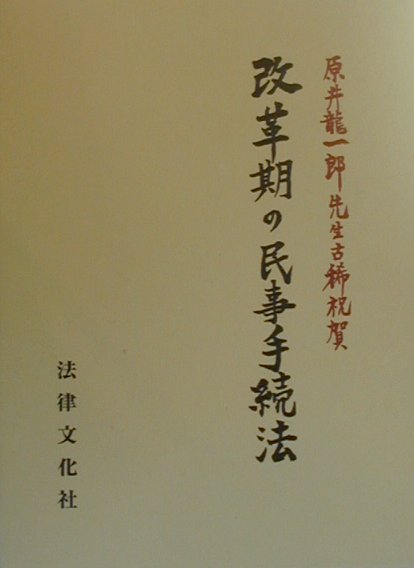 原井龍一郎先生古稀祝賀
改革期の民事手続法
法律文化社